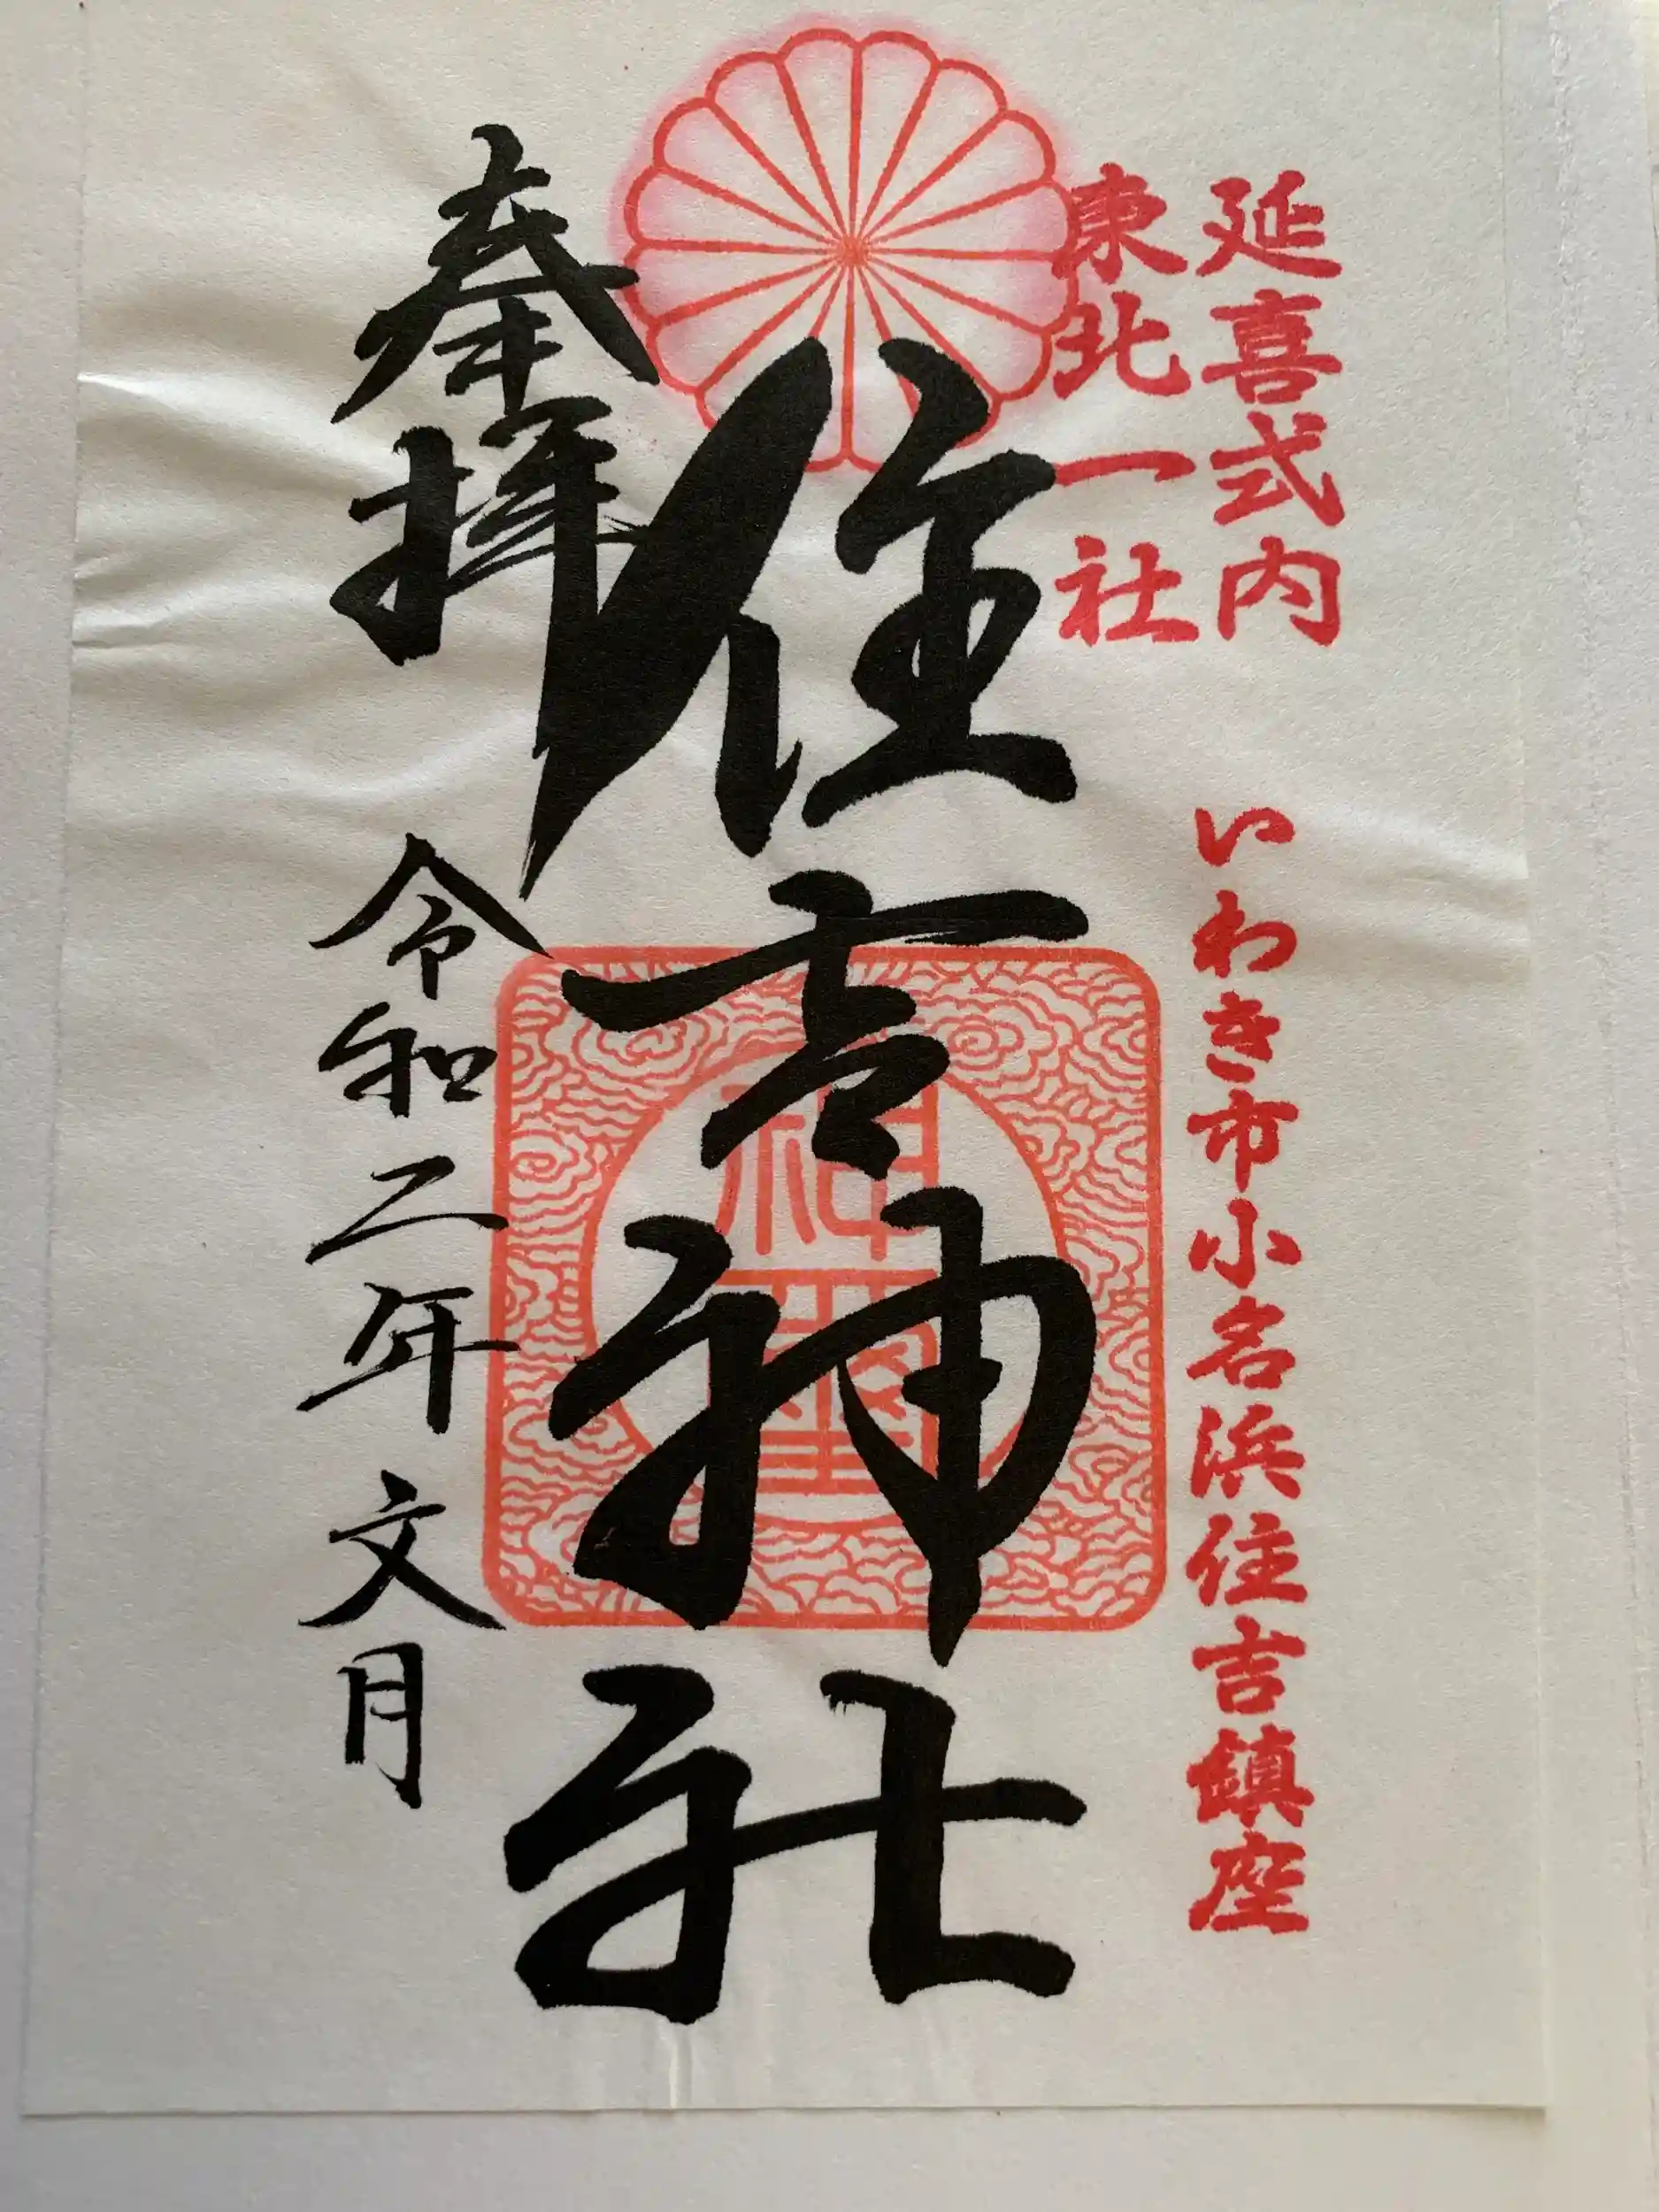 延喜式内
東北一社
いわき市小名浜住吉鎮座
住吉神社
神璽
奉拝
令和二年文月